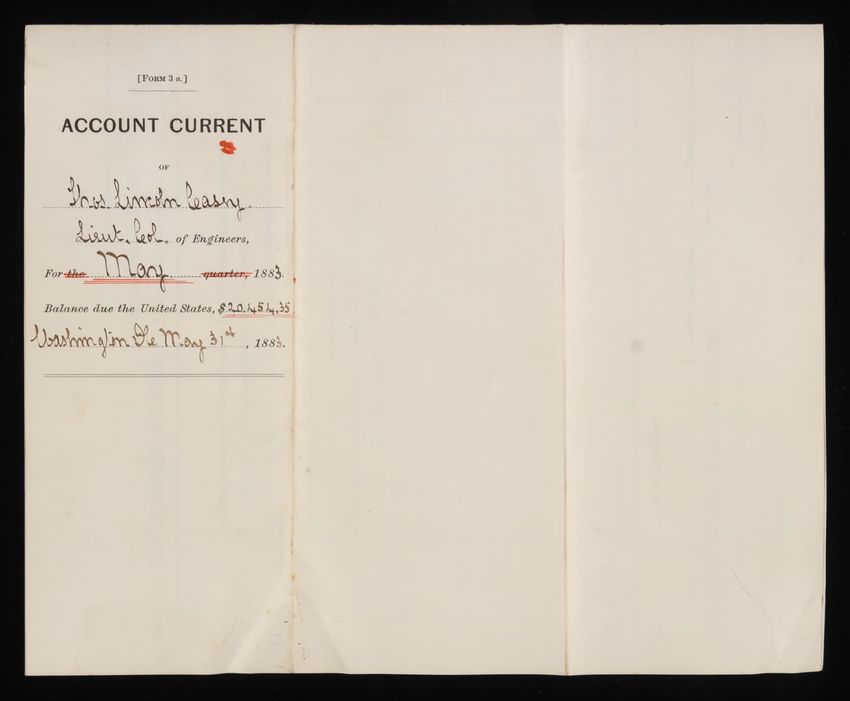 [FORM 3 a.]
ACCOUNT CURRENT
OF
Thos. Lincoln Casey.
Lieut. Col. of Engineers,
For the May quarter, 1883.
Balance due the United States, $20,454.35
Washington DC May 31st, 1883.